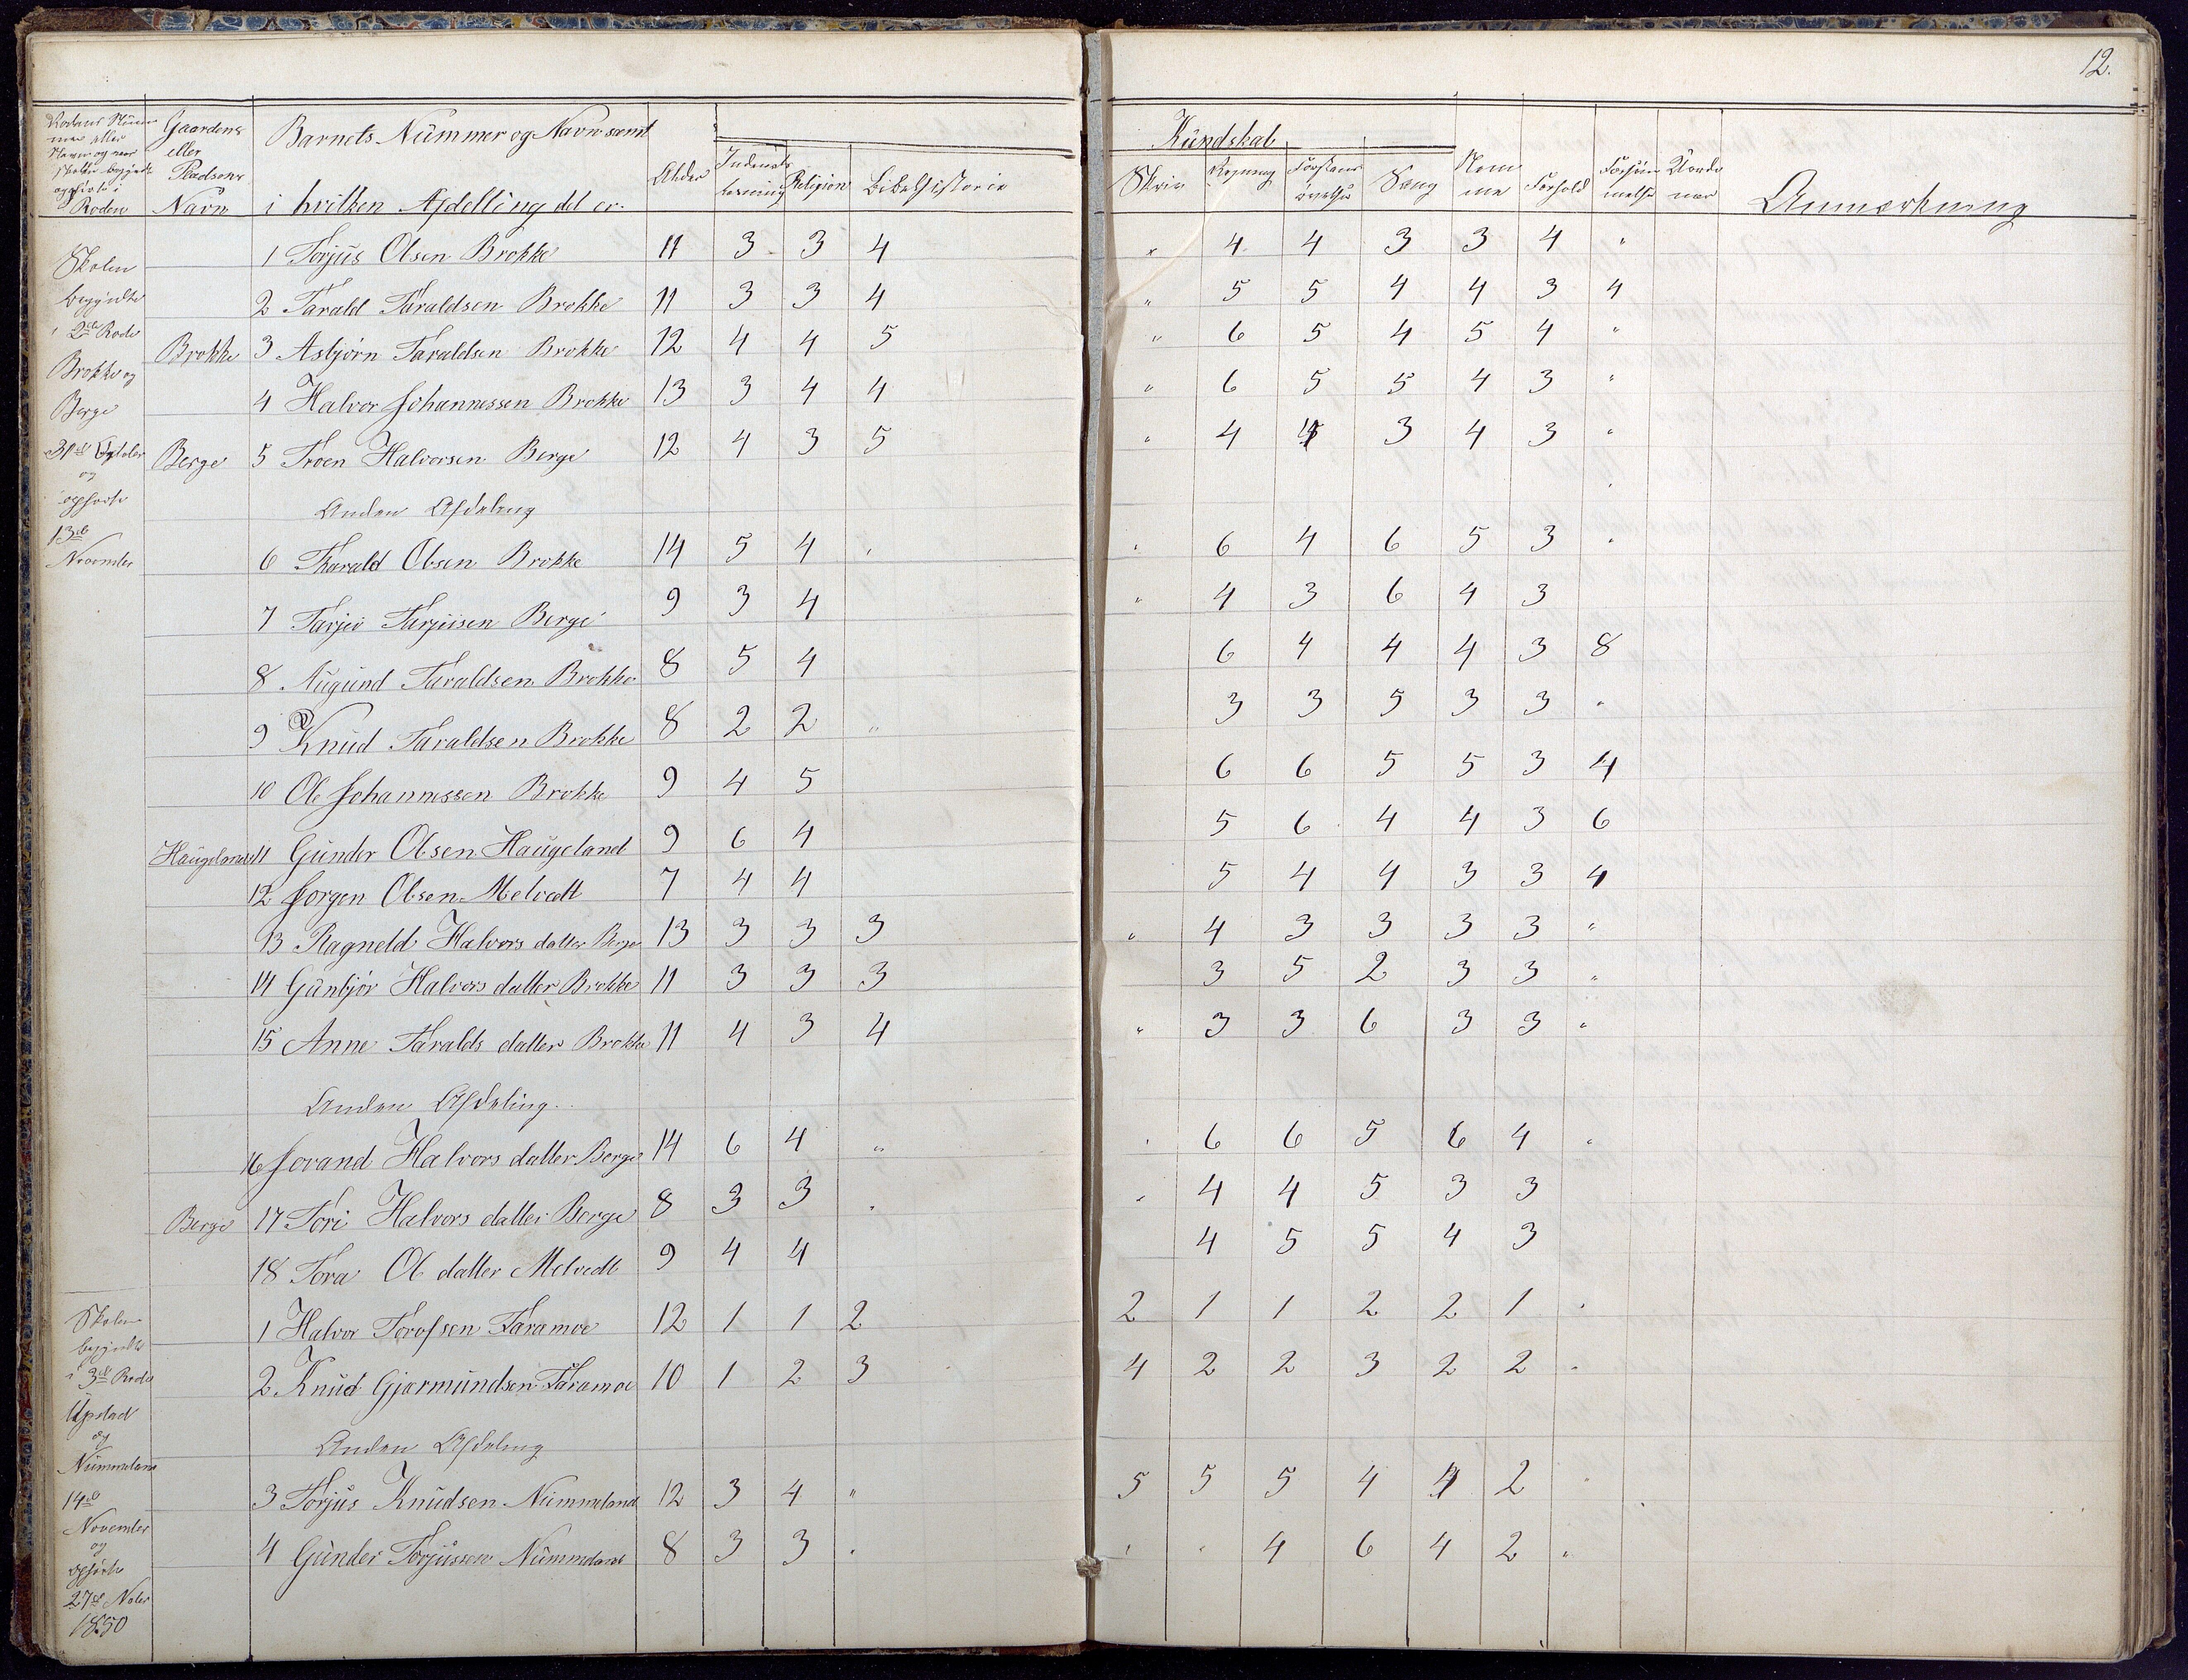 12.
Gaardens eller Pladsens Navn
Barnets Nummer og Navn samt i hvilken Afdelling det er.
Alder
Religion
Bibelhistorie
Kundskab
Skriv
Regning
Sang
Nemme
Forhold
Anmærkning
Skolen
begyndte
i 2den Rode
Brokke og
Berge
og
13de
November
1 Torjus Olsen Brokke 11 3 3 4 " 4 4 3 3 4 "
2 Tarald Taraldsen Brokke 11 3 3 4 " 5 5 4 4 3 4
Brokke 3 Asbjørn Taraldsen Brokke 12 4 4 5 " 6 5 4 5 4 "
4 Halvor Johannessen Brokke 13 3 4 4 " 6 5 5 4 3 "
Berge 5 Troen Halvorsen Berge 12 4 3 5 " 4 4 3 4 3 "
Anden Afdeling
6 Tharald Olsen Brokke 14 5 4 " " 6 4 6 5 3 "
7 Tarjei Tarjeisen Berge 9 3 4 " 4 3 6 4 3
8 Augund Taraldsen Brokke 8 5 4 6 4 4 4 3 8
9 Knud Taraldsen Brokke 8 2 2 " 3 3 5 3 3 "
10 Ole Johannessen Brokke 9 4 5 6 6 5 5 3 4
Haugeland 11 Gunder Olsen Haugeland 9 6 4 5 6 4 4 3 6
12 Jorgen Olsen Melvedt 7 4 4 5 4 4 3 3 4
13 Ragneld Halvors datter Berge 13 3 3 3 " 4 3 3 3 3 "
14 Gunbjør Halvors datter Brokke 11 3 3 3 3 5 2 3 3 "
15 Anne Taralds datter Brokke 11 4 3 4 " 3 3 6 3 3 "
Anden Afdeling.
16 Jorand Halvors datter Berge 14 6 4 " " 6 6 5 6 4 "
Berge 17 Tori Halvors datter Berge 8 3 3 " " 4 4 5 3 3
18 Tora Ol datter Melvedt 9 4 4 4 5 5 4 3
Skolen
begyndte
i 3de Rode
Upstad
og
Nummeland
14de
November
og
ophørte
27de Nobr
1850
1 Halvor Torofsen Faramoe 12 1 1 2 2 1 1 2 2 1 "
2 Knud Gjermundsen Faramoe 10 1 2 3 4 2 2 3 2 2 "
Anden Afdeling
3 Torjus Knudsen Nummeland 12 3 4 " 5 5 5 4 4 2 "
4 Gunder Torjussen Nummeland 8 3 3 " " " 4 6 4 2 "